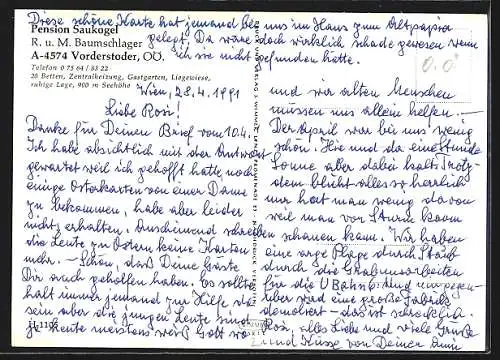 Diese schöne Karte hat jemand bei uns im Haus zum Altpapier
gelegt. Da wäre doch wirklich schade gewesen wenn
ich sie nicht gefunden hätte.
Pension Saukogel
R. u. M. Baumschlager
A-4574 Vorderstoder, OÖ.
Telefon 0 75 64 / 83 22
20 Betten, Zentralheizung, Gastgarten, Liegewiese,
ruhige Lage, 900 m Seehöhe
Wien, 28.4.1991
Liebe Rosi!
Danke für Deinen Brief vom 10.4.
Ich habe absichtlich mit der Antwort
gewartet weil ich gehofft hatte noch
einige Osterkarten von einer Dame
zu bekommen, habe aber leider
nichts erhalten. Anscheinend schreiben
die Leute zu Ostern keine Karten
mehr. – Schön, daß Deine Gäste
Dir auch geholfen haben. Es sollte
halt immer jemand zur Hilfe da
sein aber die jungen Leute sind
ja heute meistens weiß Gott wo
H 1102
und wir alten Menschen
müssen uns allein helfen. –
Der April war bei uns wenig
schön. Hie und da eine Stunde
Sonne aber dabei kalt. Trotz-
dem blüht alles so herrlich
nur hat man wenig davon
weil man vor Sturm kaum
schauen kann. Wir haben
eine arge Plage durch Staub
durch die Grabungsarbeiten
für die U Bahn. Und
aber wird eine große Fabrik
demoliert – das ist schrecklich.
Rosi, alles Liebe und viele Grüße
und Küsse von Deiner Anni